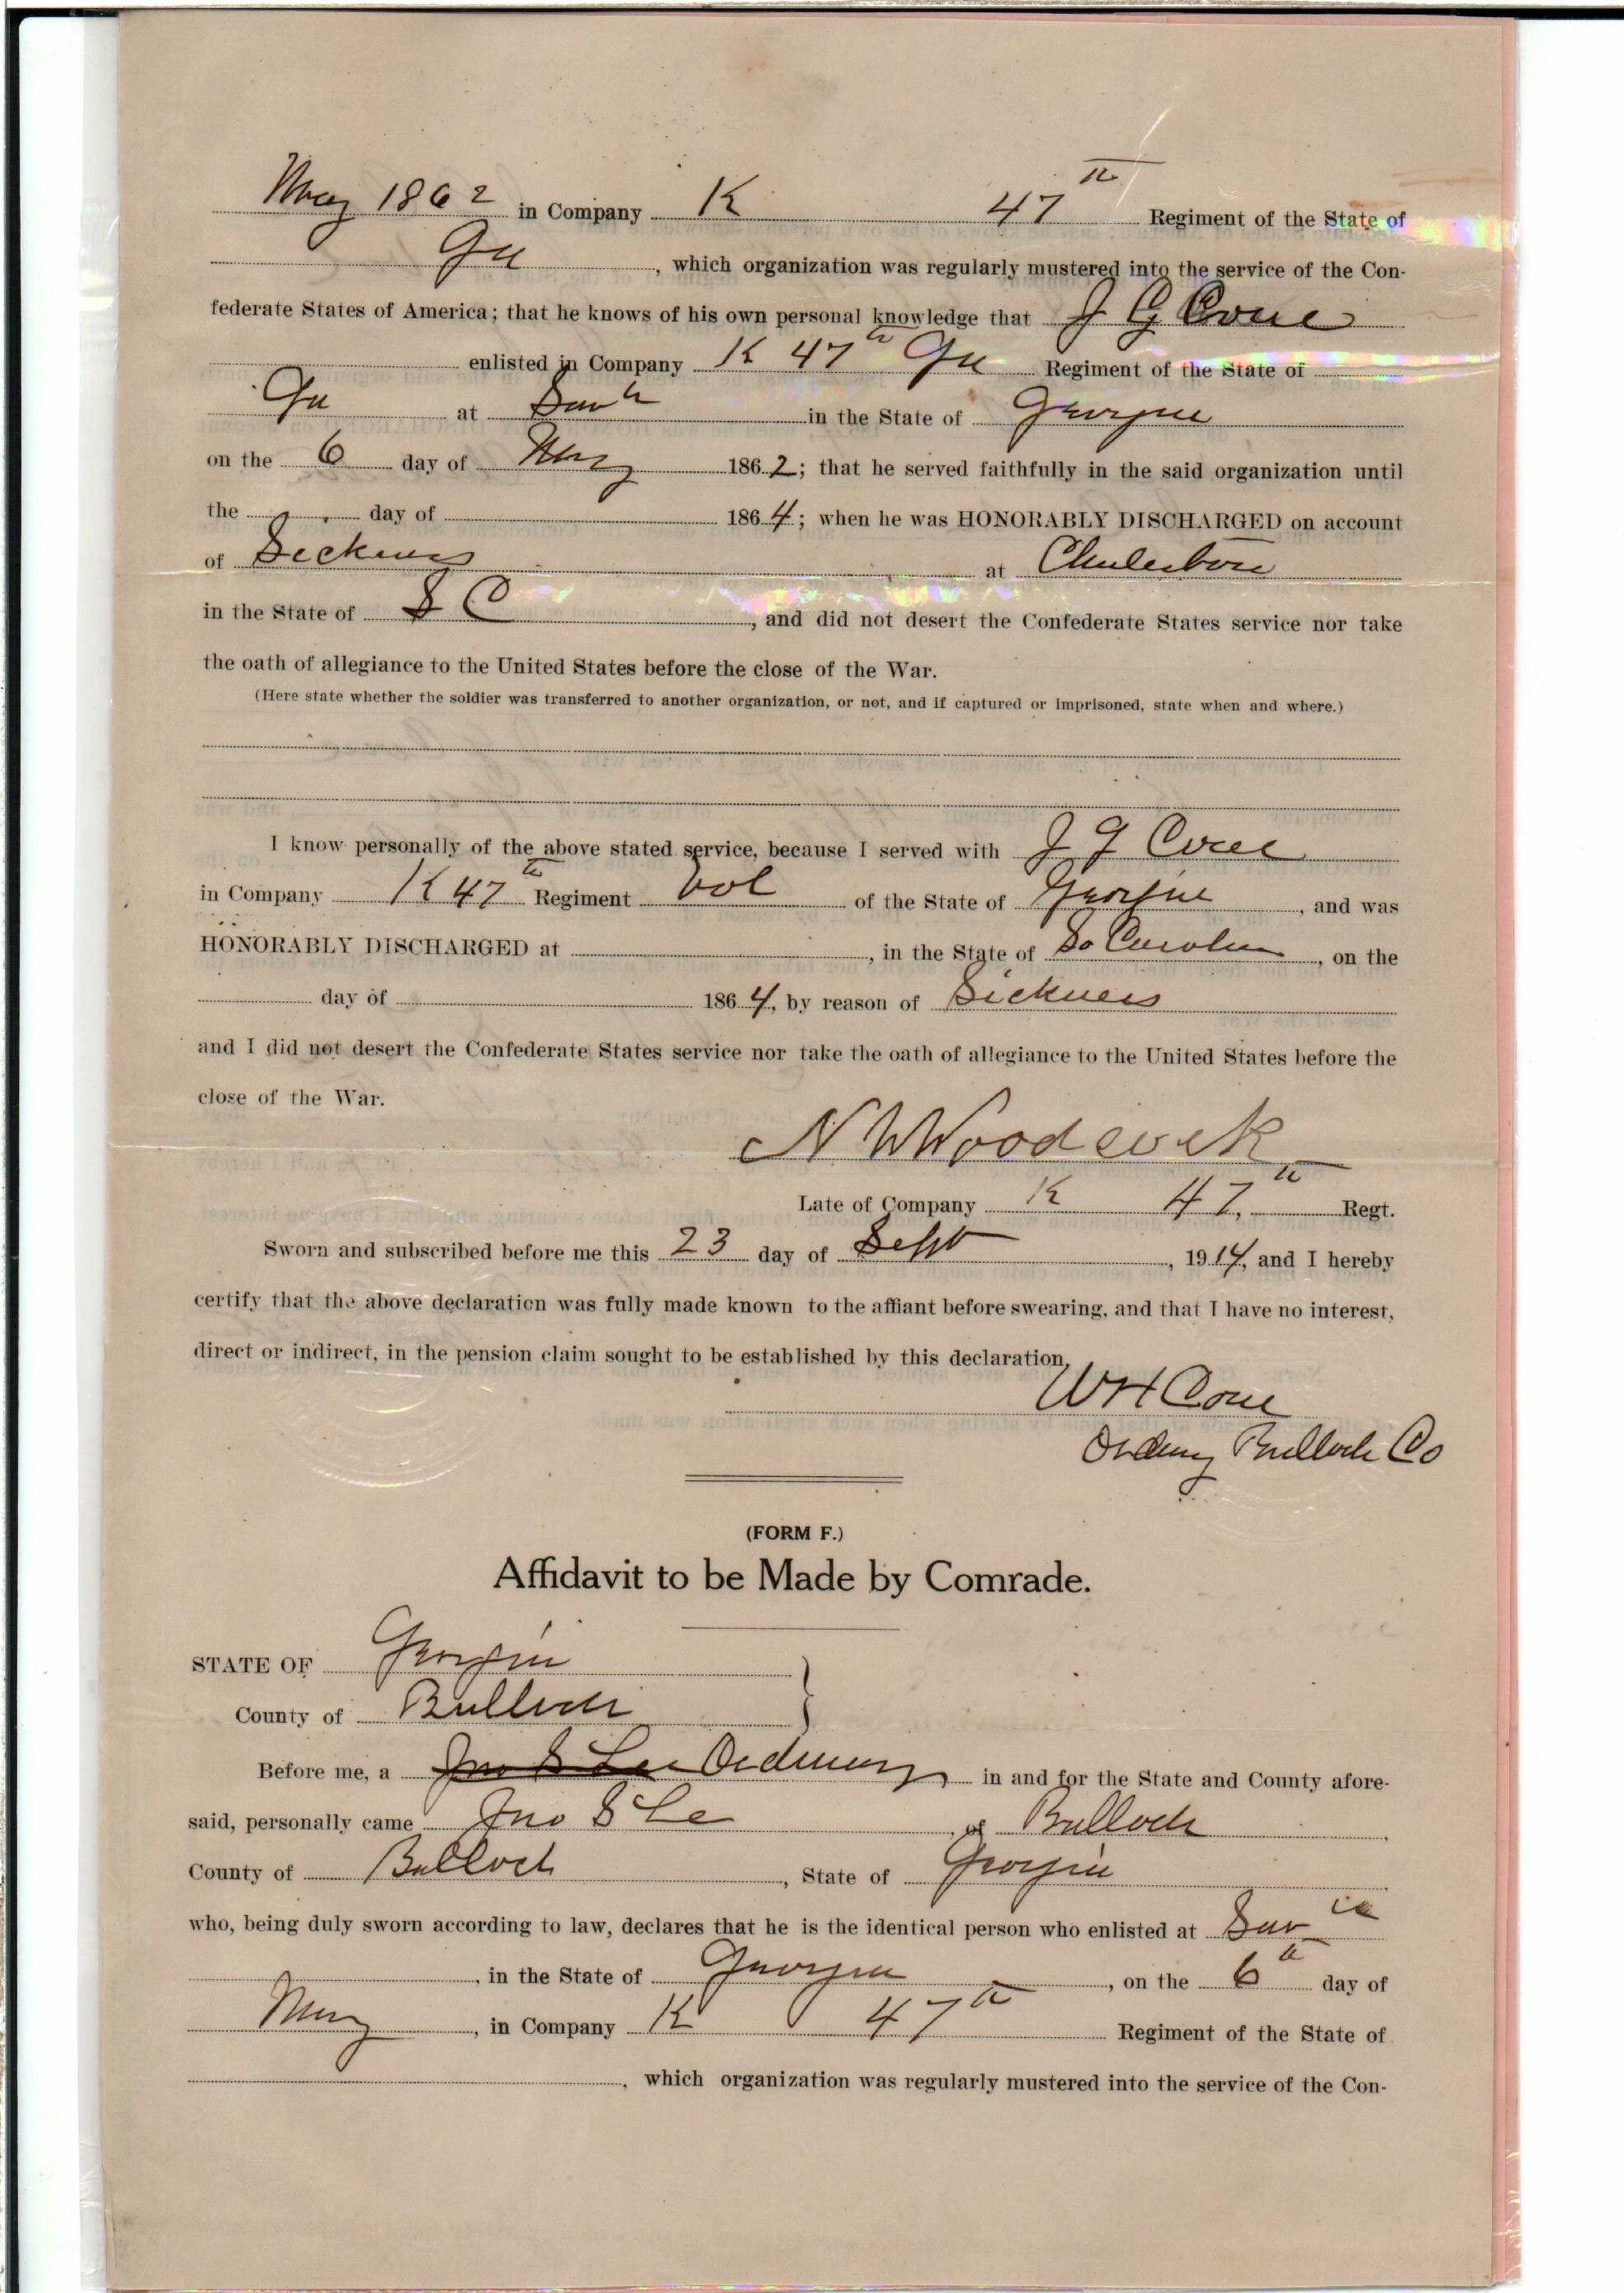 May 1862 in Company K 47th Regiment of the State of
Ga, which organization was regularly mustered into the service of the Con-
federate States of America; that he knows of his own personal knowledge that J G Cone
enlisted in Company K 47th Ga Regiment of the State of
Ga at Savh in the State of Georgia
on the 6 day of May 1862; that he served faithfully in the said organization until
the day of 1864; when he was HONORABLY DISCHARGED on account
of Sickness at Charleston
in the State of S C, and did not desert the Confederate States service nor take
the oath of allegiance to the United States before the close of the War.
(Here state whether the soldier was transferred to another organization, or not, and if captured or imprisoned, state when and where.)
I know personally of the above stated service, because I served with J G Cone
in Company K 47th Regiment Vol of the State of Georgia, and was
HONORABLY DISCHARGED at , in the State of So Carolina, on the
day of 1864, by reason of Sickness
and I did not desert the Confederate States service nor take the oath of allegiance to the United States before the
close of the War.
N W Woodcock
Late of Company K 47th Regt.
Sworn and subscribed before me this 23 day of Sept, 1914, and I hereby
certify that the above declaration was fully made known to the affiant before swearing, and that I have no interest,
direct or indirect, in the pension claim sought to be established by this declaration.
W H Cone
Ordinary Bulloch Co
(FORM F.)
Affidavit to be Made by Comrade.
STATE OF Georgia
County of Bulloch
Before me, a Jno S Lee Ordinary, in and for the State and County afore-
said, personally came Jno S Le of Bulloch
County of Bulloch, State of Georgia
who, being duly sworn according to law, declares that he is the identical person who enlisted at Sav
, in the State of Georgia, on the 6th day of
May, in Company K 47th Regiment of the State of
, which organization was regularly mustered into the service of the Con-